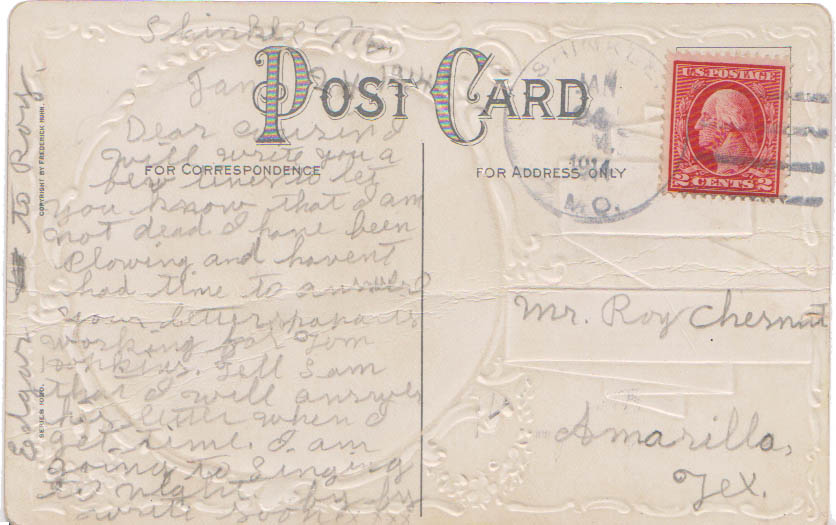 Shinkle Mo.
Jan
POST CARD
Dear Cousin I
will write you a
FOR CORRESPONDENCE
few lines to let
you know that I am
not dead I have been
Plowing and havent
had time to answer
your letter
working for Tom
Tell Sam
that I will answer
his letter when I
get time. I am
going to Singing
to night. by by
write soon xxxx
Edgar to Roy.
COPYRIGHT BY FREDERICK
SERIES
FOR ADDRESS ONLY
SHINKLE
JAN
24
1914
MO.
U.S. POSTAGE
2 CENTS 2
Mr. Roy Chesnut
Amarillo,
Tex.